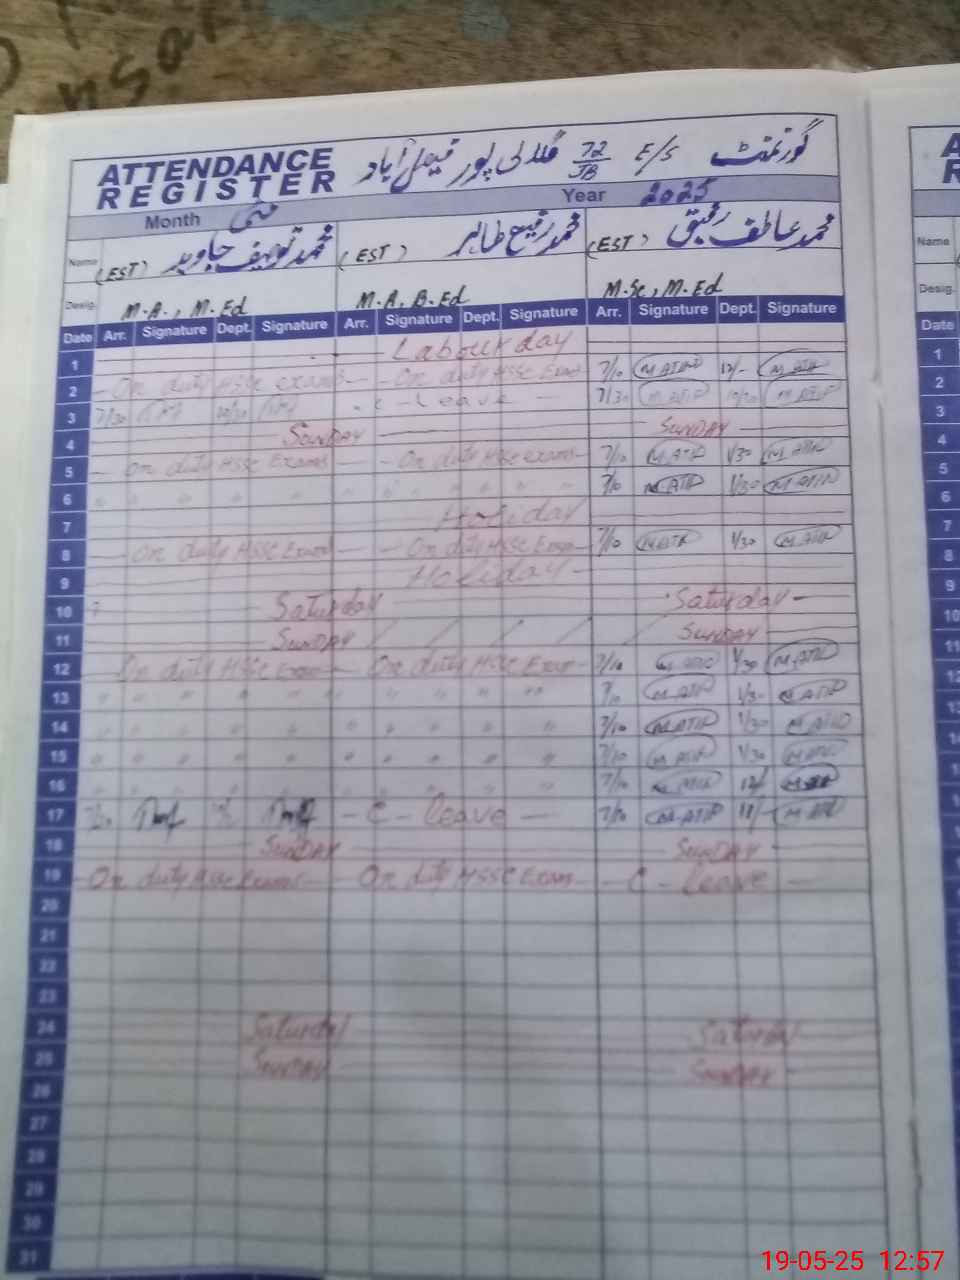 گورنمنٹ E/S 72/JB گلالی پور فیصل آباد
ATTENDANCE
REGISTER
Month مئی Year 2025
Name (EST) محمد توصیف جاوید (EST) محمد رفیع طاہر (EST) محمد عاطف رفیق
Desig. M.A., M.Ed M.A, B.Ed M.Sc, M.Ed
Date Arr. Signature Dept. Signature Arr. Signature Dept. Signature Arr. Signature Dept. Signature
1 Labour day
2 On duty HSSC exams On duty HSSC Exam 7/10 M ATIF 12/- M ATIF
3 7/30 C - Leave 7/30 M ATIF M ATIF
4 SUNDAY SUNDAY
5 On duty HSSC Exams On duty HSSC exams 7/10 M ATIF 1/30 M ATIF
6 " " " " " " " " 7/10 M ATIF 1/30 M ATIF
7 Holiday
8 On duty HSSC Exams On duty HSSC Exam 7/10 M ATIF 1/30 M ATIF
9 Holiday
10 Saturday Saturday
11 SUNDAY SUNDAY
12 On duty HSSC Exam On duty HSSC Exam 7/10 M ATIF 1/30 M ATIF
13 " " " " " " " " 7/10 M ATIF 1/30 M ATIF
14 " " " " " " " " 7/10 M ATIF 1/30 M ATIF
15 " " " " " " " " 7/10 M ATIF 1/30 M ATIF
16 " " " " " " " " 7/10 M ATIF 12/ M ATIF
17 C - leave 7/10 M ATIF M ATIF
18 SUNDAY SUNDAY
19 On duty HSSC Exams On duty HSSC Exam C - leave
20
21
22
23
24 Saturday Saturday
25 SUNDAY SUNDAY
26
27
28
29
30
31
Name
Desig.
Date
1
2
3
4
5
6
7
8
9
10
11
12
19-05-25 12:57